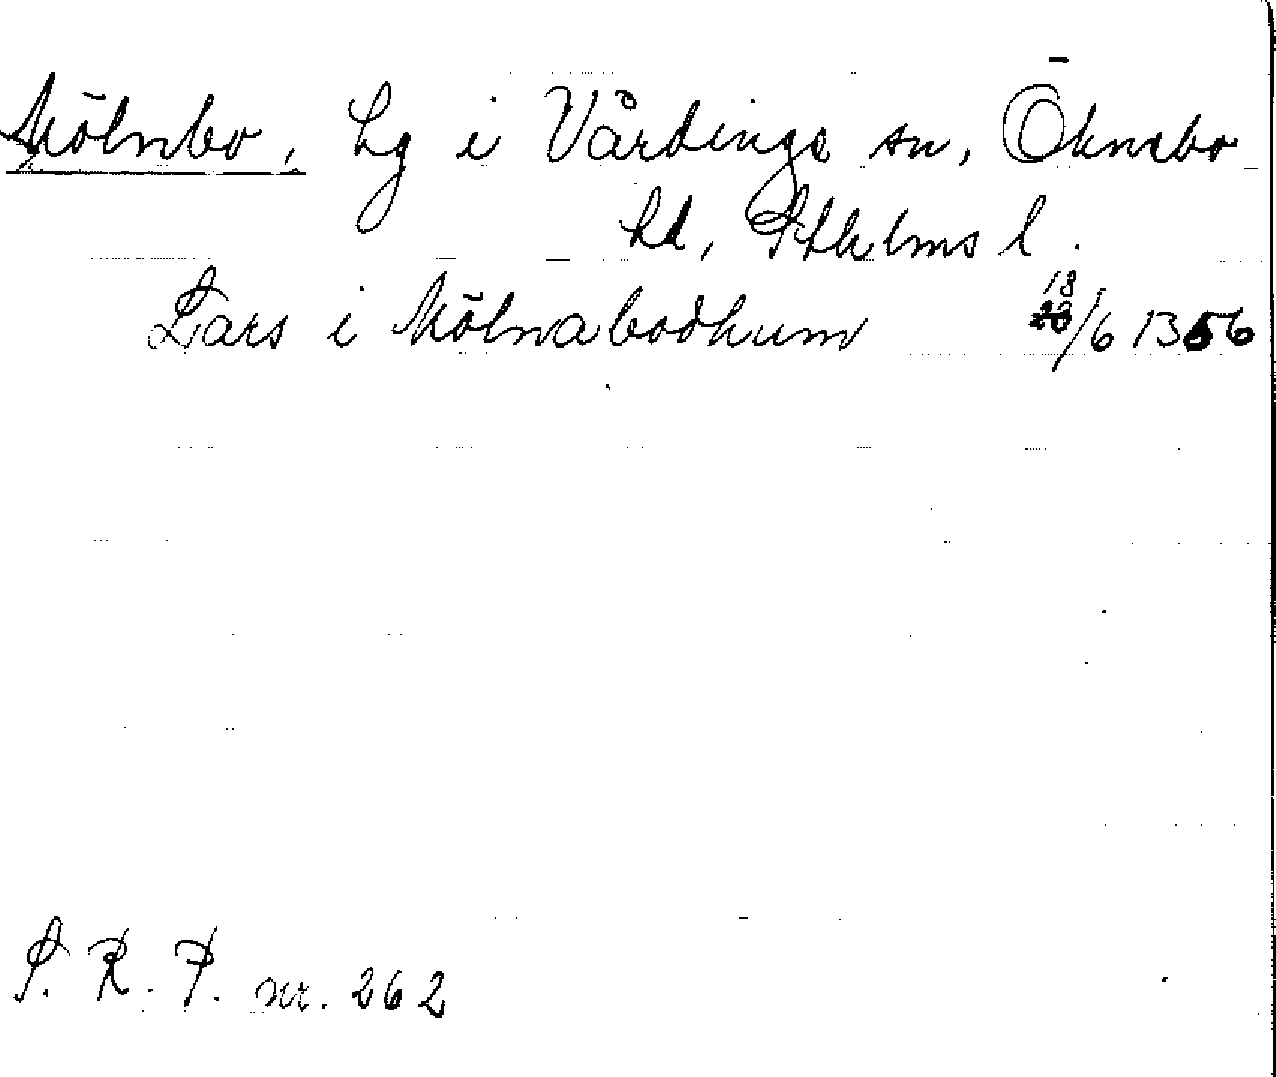 Mölnbo, hg i Vårdinge sn, Öknebo
hd, Sthlms l.
Lars i Mölnabodhum 18/6 1356
S. R. P. nr. 262